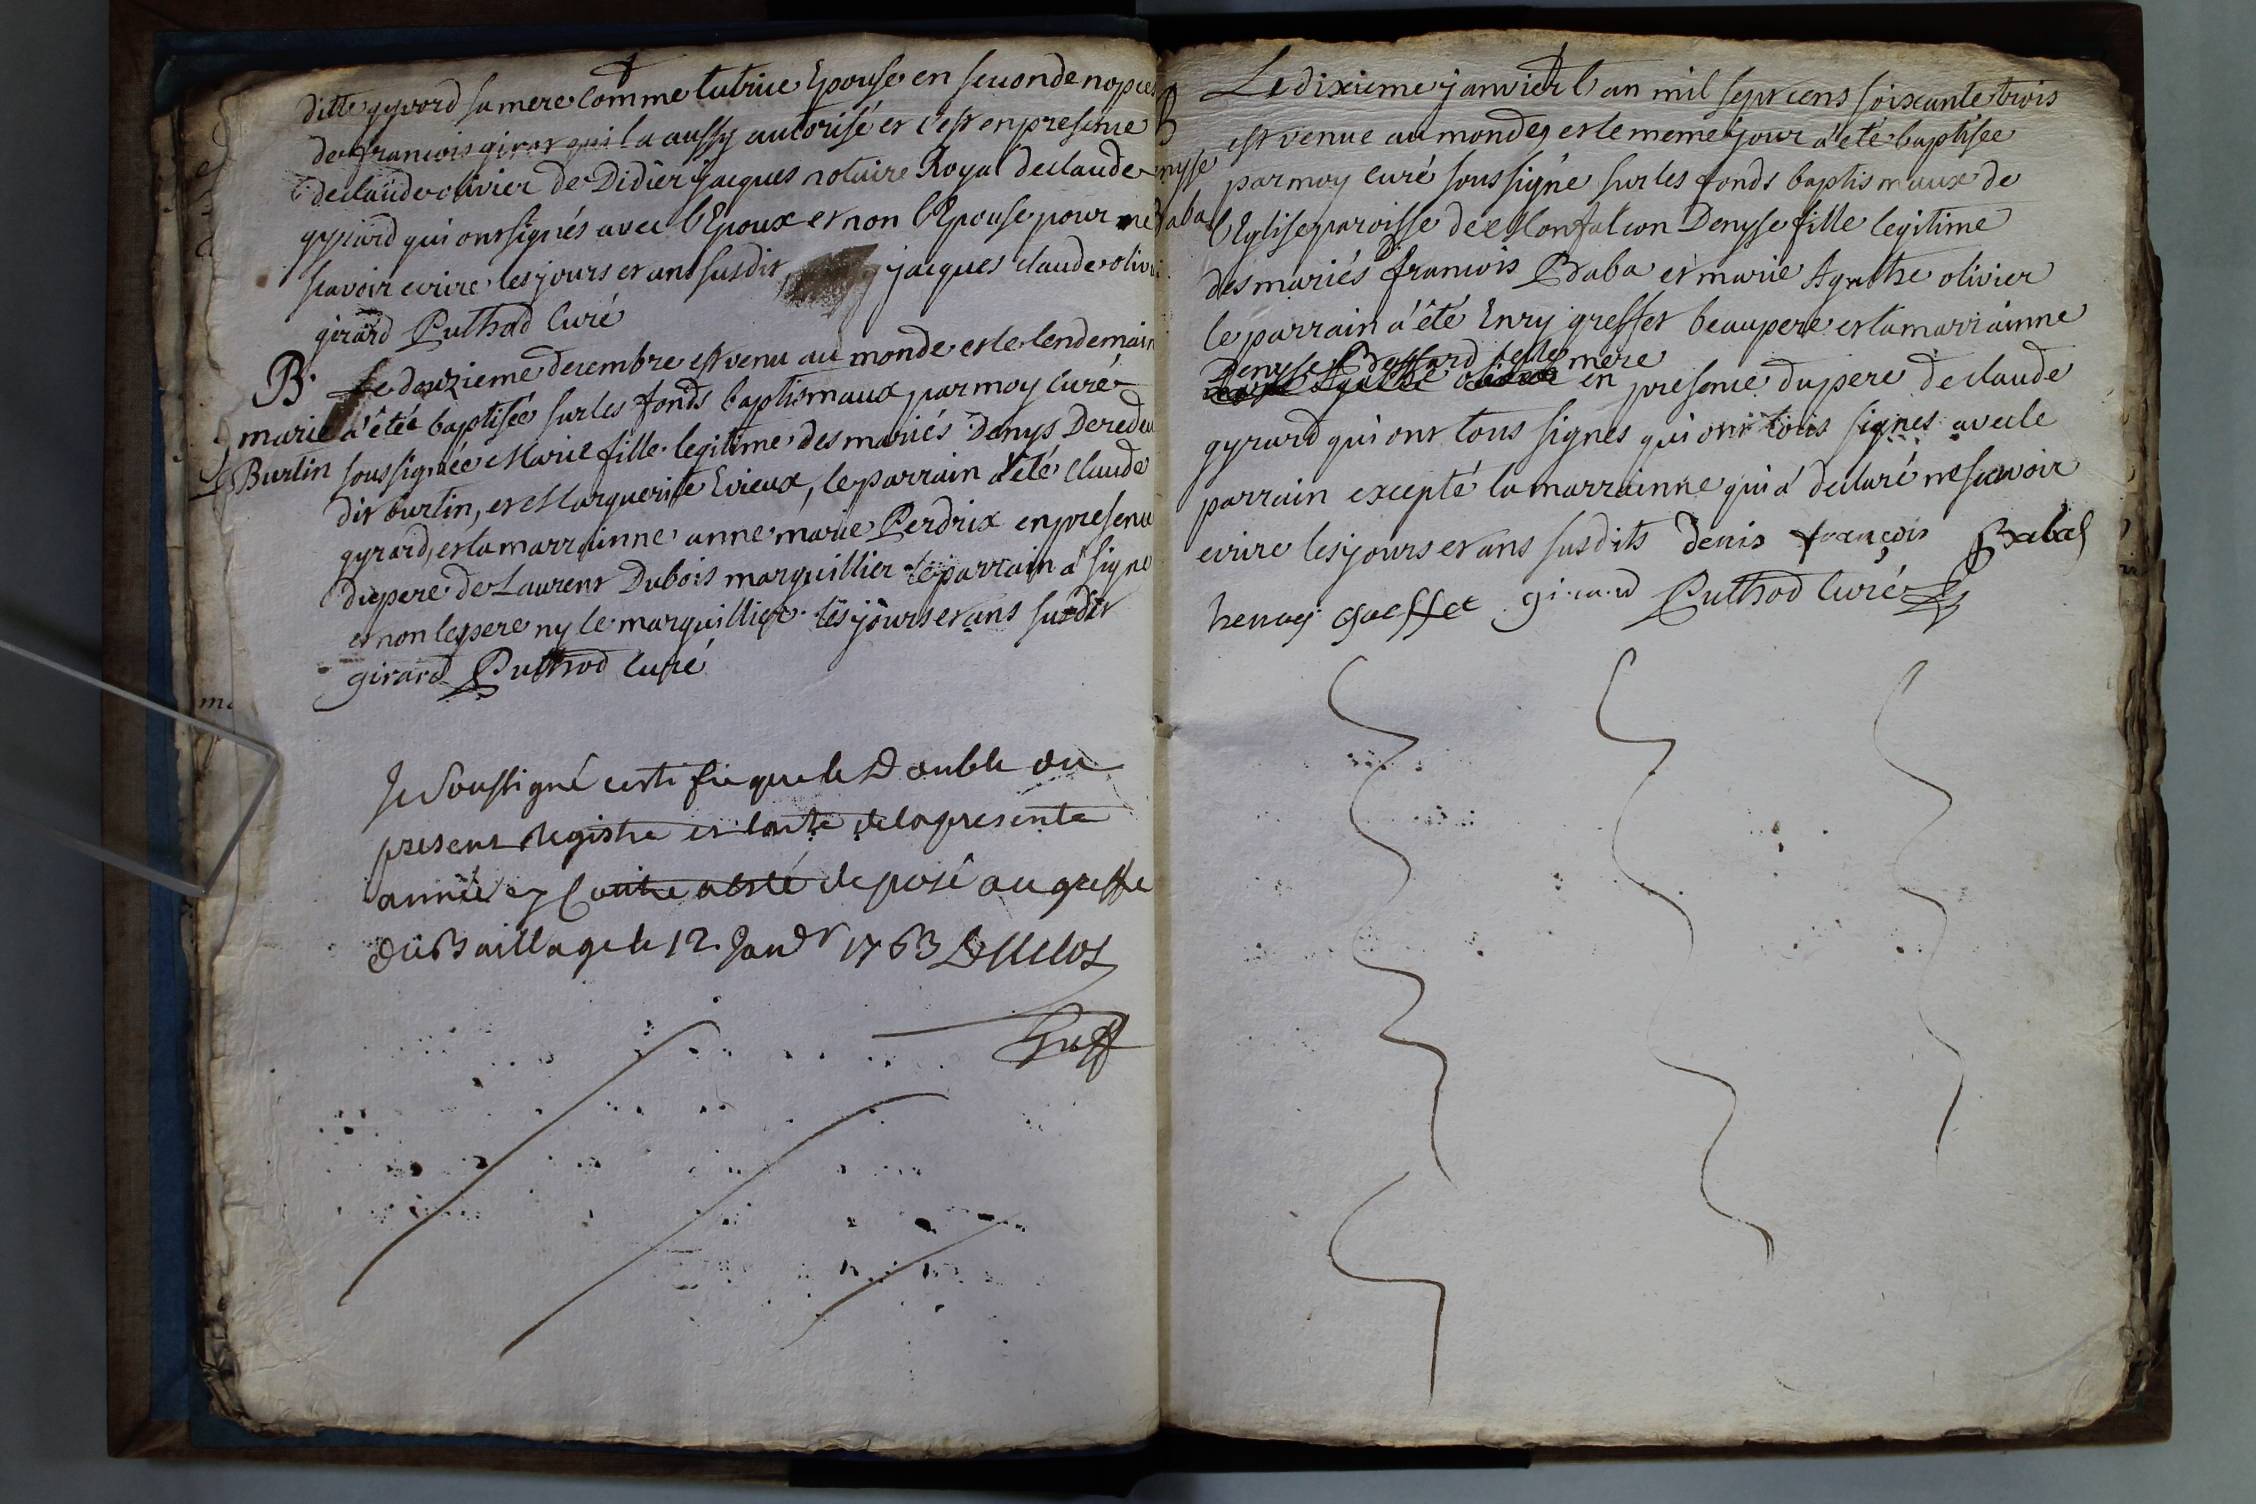 ditte gyrord sa mere comme tutrice Epouse en seconde nopces
de francois girot qui la aussy autorisé et c'est en presence
de claude olivier de Didier jacques notaire Royal de claude
gyrard qui ont signés avec l'Epoux et non l'Epouse pour ne
scavoir ecrire les jours et ans susdit jacques claude olivi
girard Puthod Curé
B. Le douzieme decembre est venu au monde et le lendemain
marie a'étée baptisée sur les fonds baptismaux par moy curé
Burtin soussignée Marie fille legitime des mariés Denys Deredeu
dit burtin, et Marguerite Evieux, le parrain a'été claude
gyrard, et la marrainne anne marie Perdrix en presence
du pere de Laurent Dubois marguillier le parrain a' signe
et non le pere ny le marguillier les jours et ans susdit
girard Puthod Curé
Je Soussigné certifie que le Double du
present Registre et la presente
année deposé au greffe
du Baillage le 12. Janvr 1763
Greff
Le dixieme janvier l'an mil sept cens soixante trois
B est venue au monde, et le meme jour a'été baptisée
nysse par moy Curé soussigné sur les fonds baptismaux de
Baba l'Eglise paroisse de Monfalcon Denyse fille legitime
des mariés francois Baba et marie Agathe olivier
le parrain a'été Enry greffet beaupere et la marrainne
Denyse Bossard belle mere
en presence du pere de claude
gyrard qui ont tous signés qui ont tous signes avec le
parrain excepté la marrainne qui a' declaré ne scavoir
ecrire les jours et ans susdits denis françois Baba
henry Greffet girard Puthod Curé